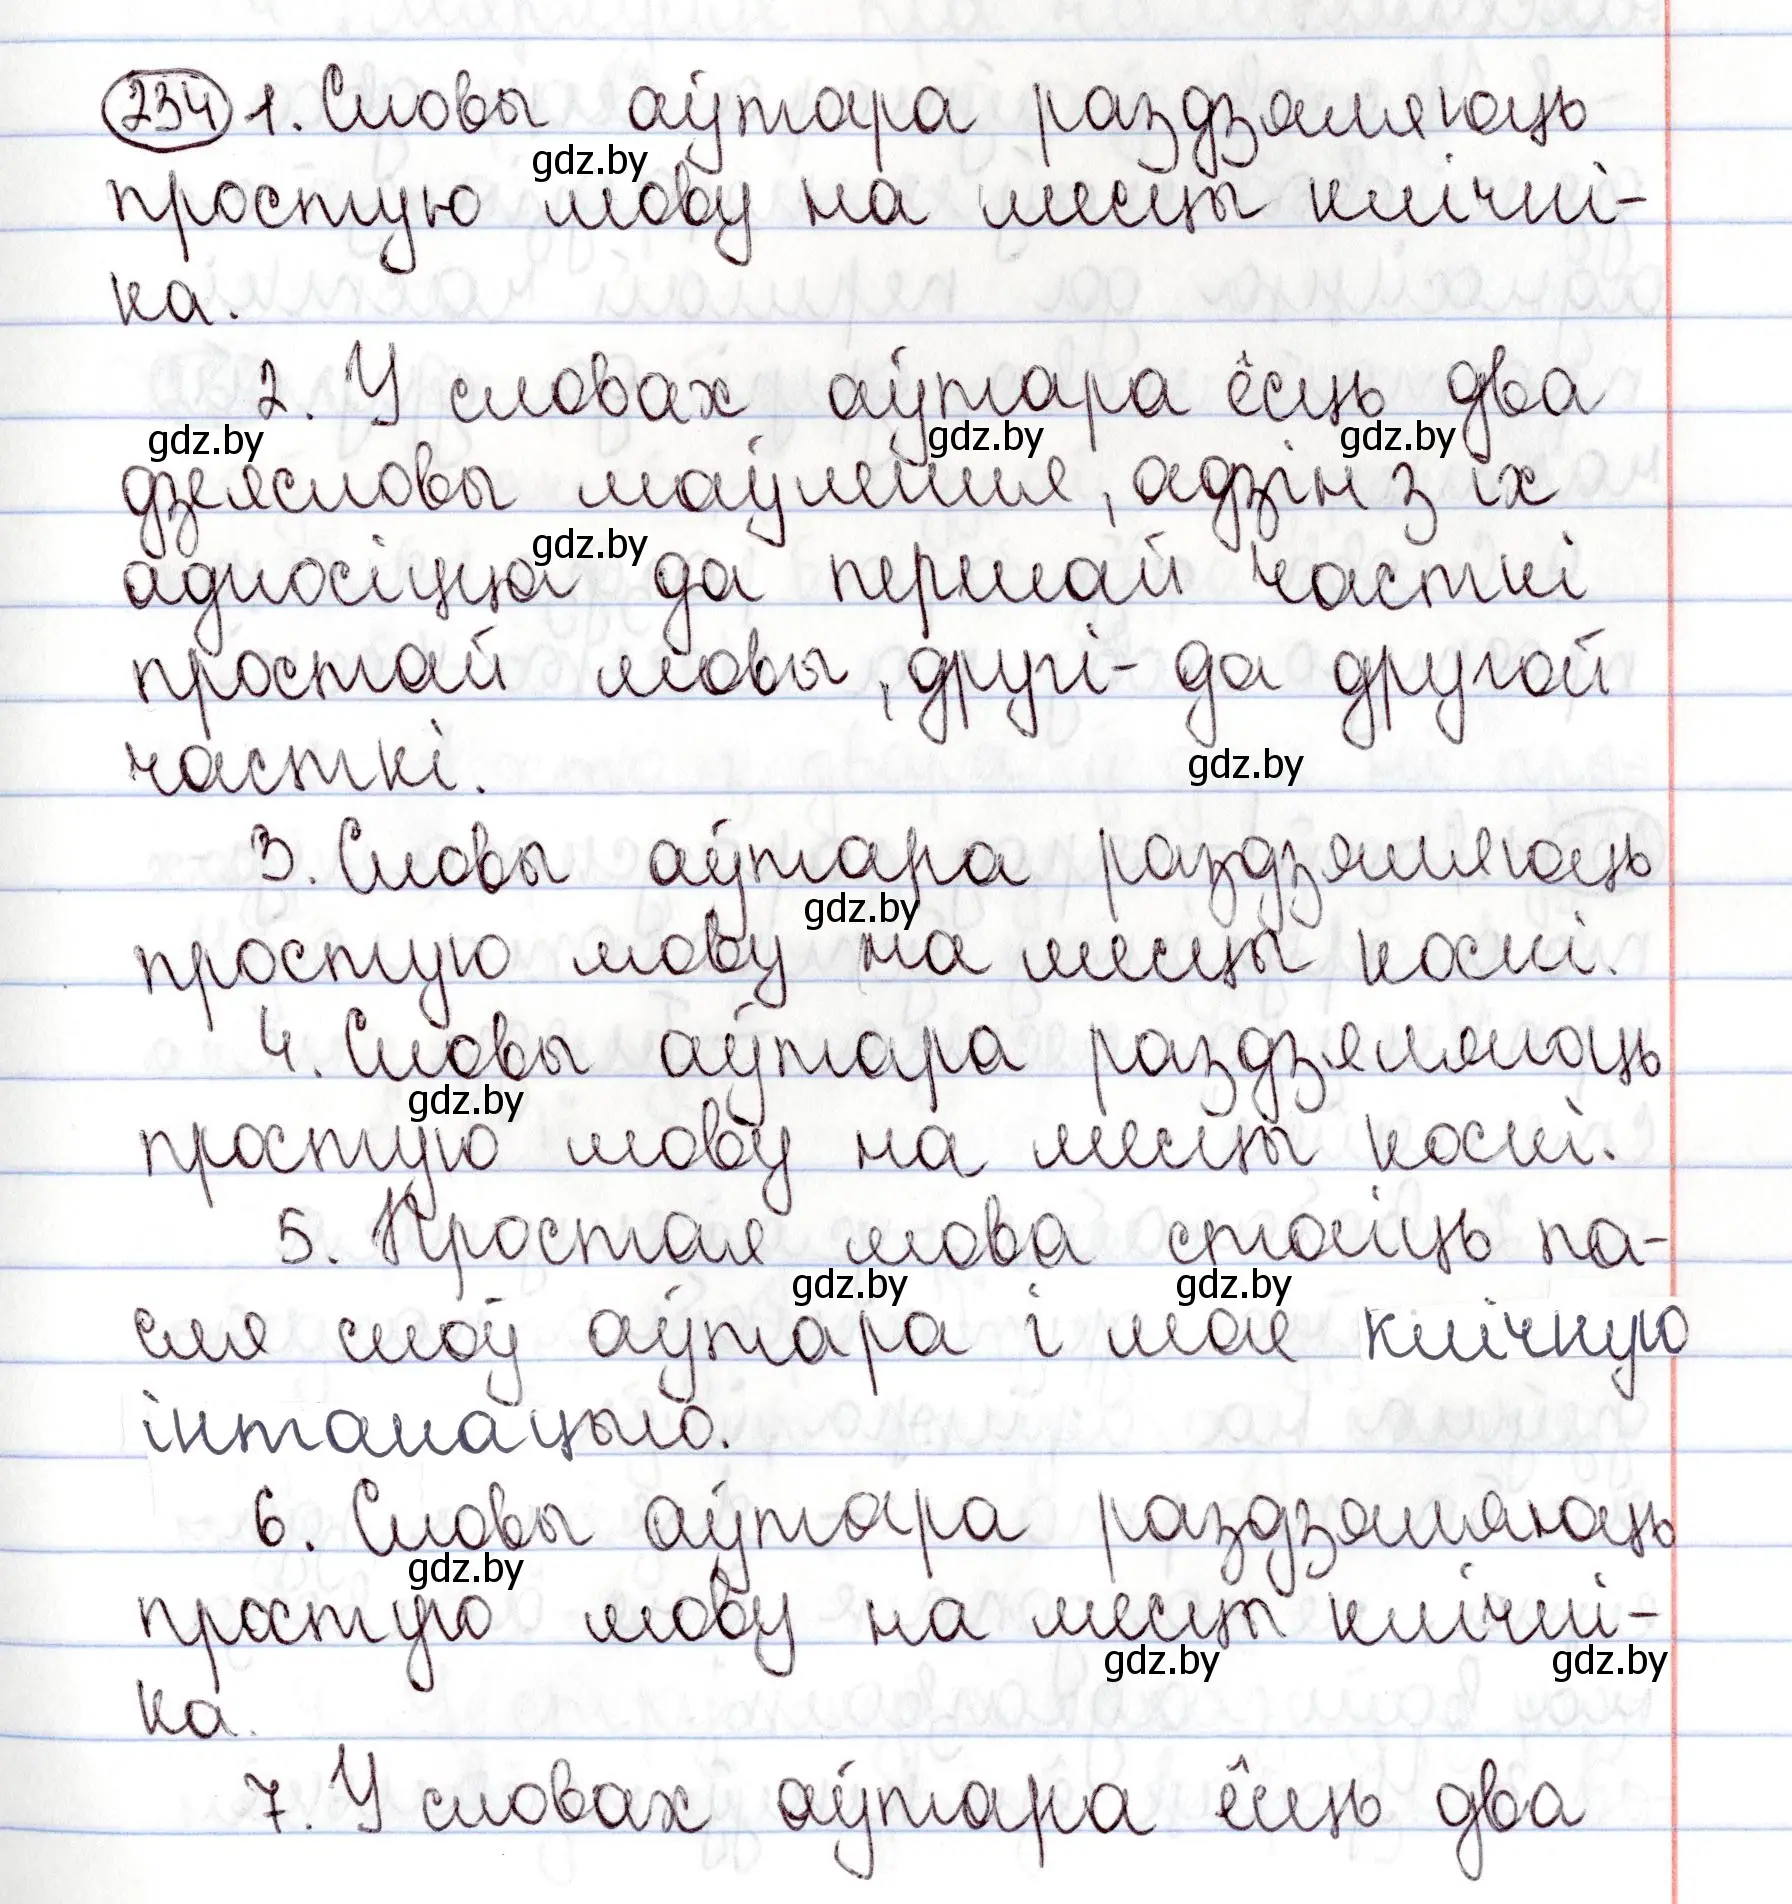 234 1. Словы аўтара раздзяляюць
gdz.by
простую мову на месцы клічні-
ка.
2. У словах аўтара ёсць два
gdz.by gdz.by gdz.by
дзеясловы маўлення, адзін з іх
gdz.by
адносіцца да першай часткі
простай мовы, другі - да другой
часткі.
gdz.by
3. Словы аўтара раздзяляюць
gdz.by
простую мову на месцы коскі.
4. Словы аўтара раздзяляюць
gdz.by
простую мову на месцы коскі.
5. Простая мова стаіць па-
gdz.by gdz.by
сля слоў аўтара і мае клічную
інтанацыю.
6. Словы аўтара раздзяляюць
gdz.by
простую мову на месцы клічні-
gdz.by gdz.by
ка.
7. У словах аўтара ёсць два